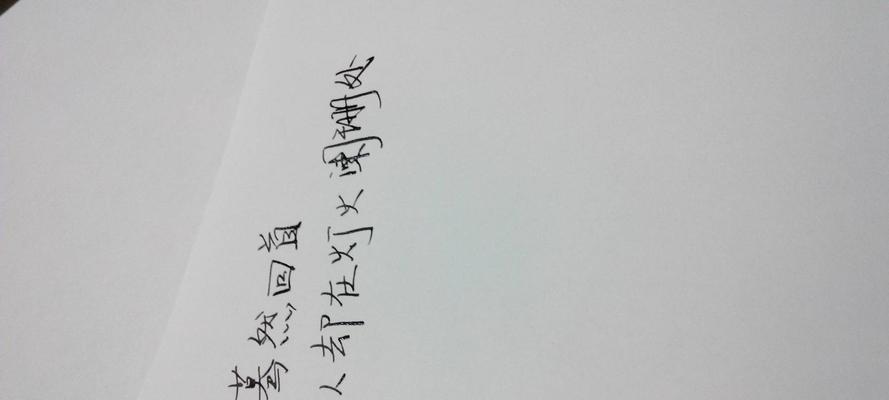 蓦然回首
人却在灯火阑珊处